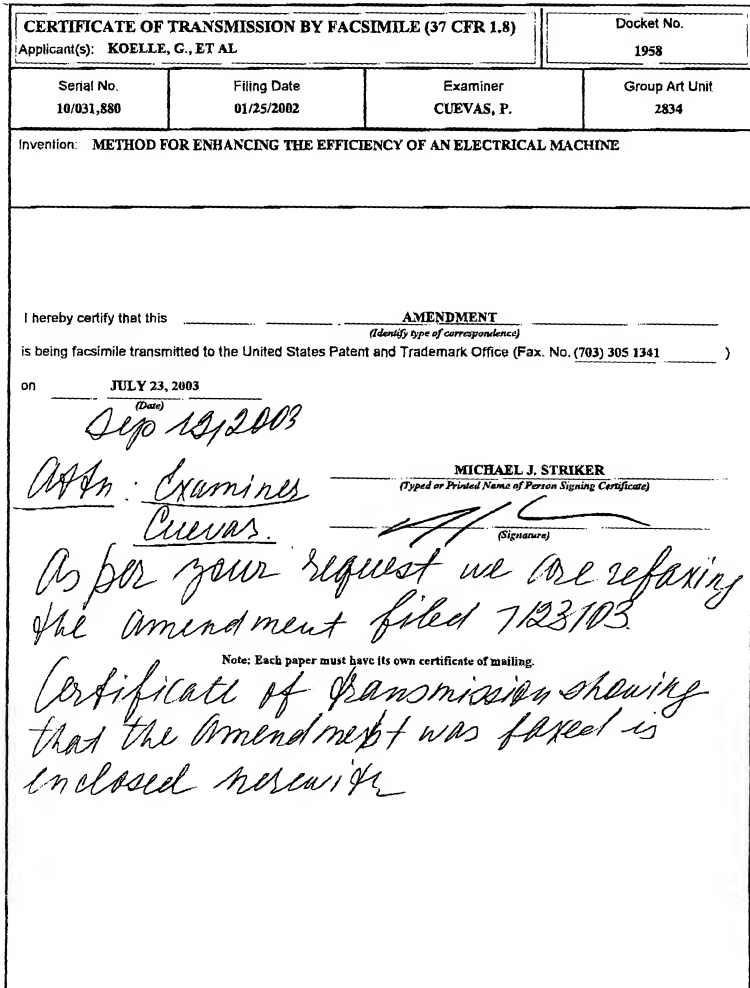 CERTIFICATE OF TRANSMISSION BY FACSIMILE (37 CFR 1.8)
Applicant(s): KOELLE, G., ET AL
Docket No.
1958
Serial No.
10/031,880
Filing Date
01/25/2002
Examiner
CUEVAS, P.
Group Art Unit
2834
Invention: METHOD FOR ENHANCING THE EFFICIENCY OF AN ELECTRICAL MACHINE
I hereby certify that this AMENDMENT
(Identify type of correspondence)
is being facsimile transmitted to the United States Patent and Trademark Office (Fax. No. (703) 305 1341 )
on JULY 23, 2003
(Date)
Sep 12, 2003
Attn: Examiner
Cuevas.
MICHAEL J. STRIKER
(Typed or Printed Name of Person Signing Certificate)
(Signature)
As per your request we are refaxing
the amendment filed 7/23/03.
Note: Each paper must have its own certificate of mailing.
Certificate of transmission showing
that the amendment was faxed is
enclosed herewith